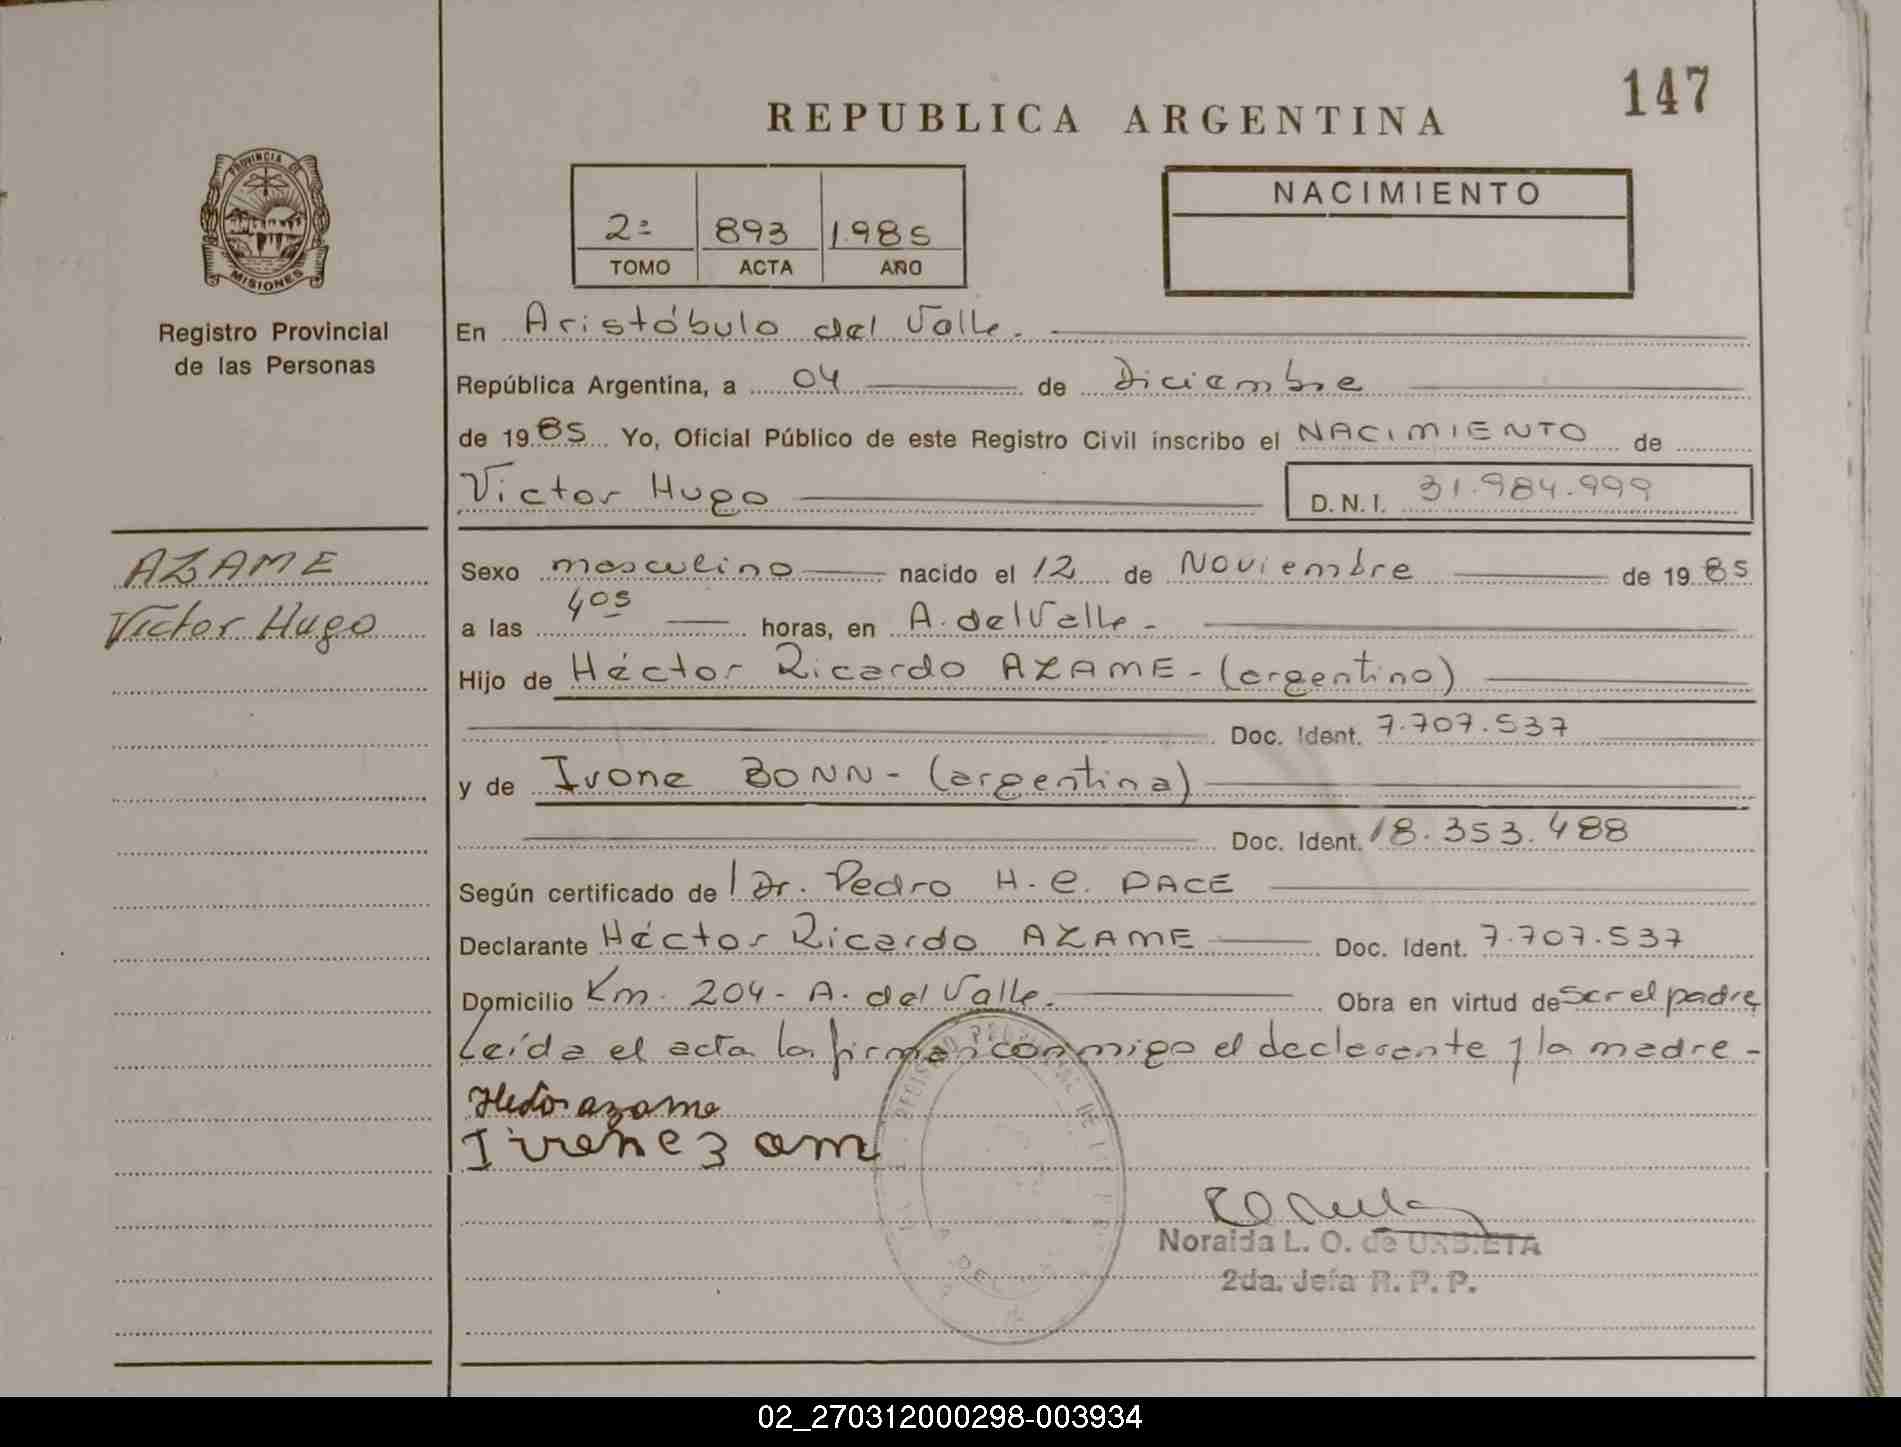 147
REPUBLICA ARGENTINA
PROVINCIA DE
MISIONES
Registro Provincial
de las Personas
2º 893 1985
TOMO ACTA AÑO
NACIMIENTO
En Aristóbulo del Valle.
República Argentina, a 04 de Diciembre
de 1985 Yo, Oficial Público de este Registro Civil inscribo el NACIMIENTO de
Víctor Hugo D.N.I. 31.984.999
AZAME
Víctor Hugo
Sexo masculino nacido el 12 de Noviembre de 1985
a las 405 horas, en A. del Valle -
Hijo de Héctor Ricardo AZAME - (argentino)
Doc. Ident. 7.707.537
y de Ivone BONN - (argentina)
Doc. Ident. 18.353.488
Según certificado de Dr. Pedro H. C. PACE
Declarante Héctor Ricardo AZAME Doc. Ident. 7.707.537
Domicilio Km. 204 - A. del Valle. Obra en virtud de ser el padre
Leída el acta la firman conmigo el declarante y la madre -
azame
Noraida L. O. de URBIETA
2da. Jefa R. P. P.
02_270312000298-003934